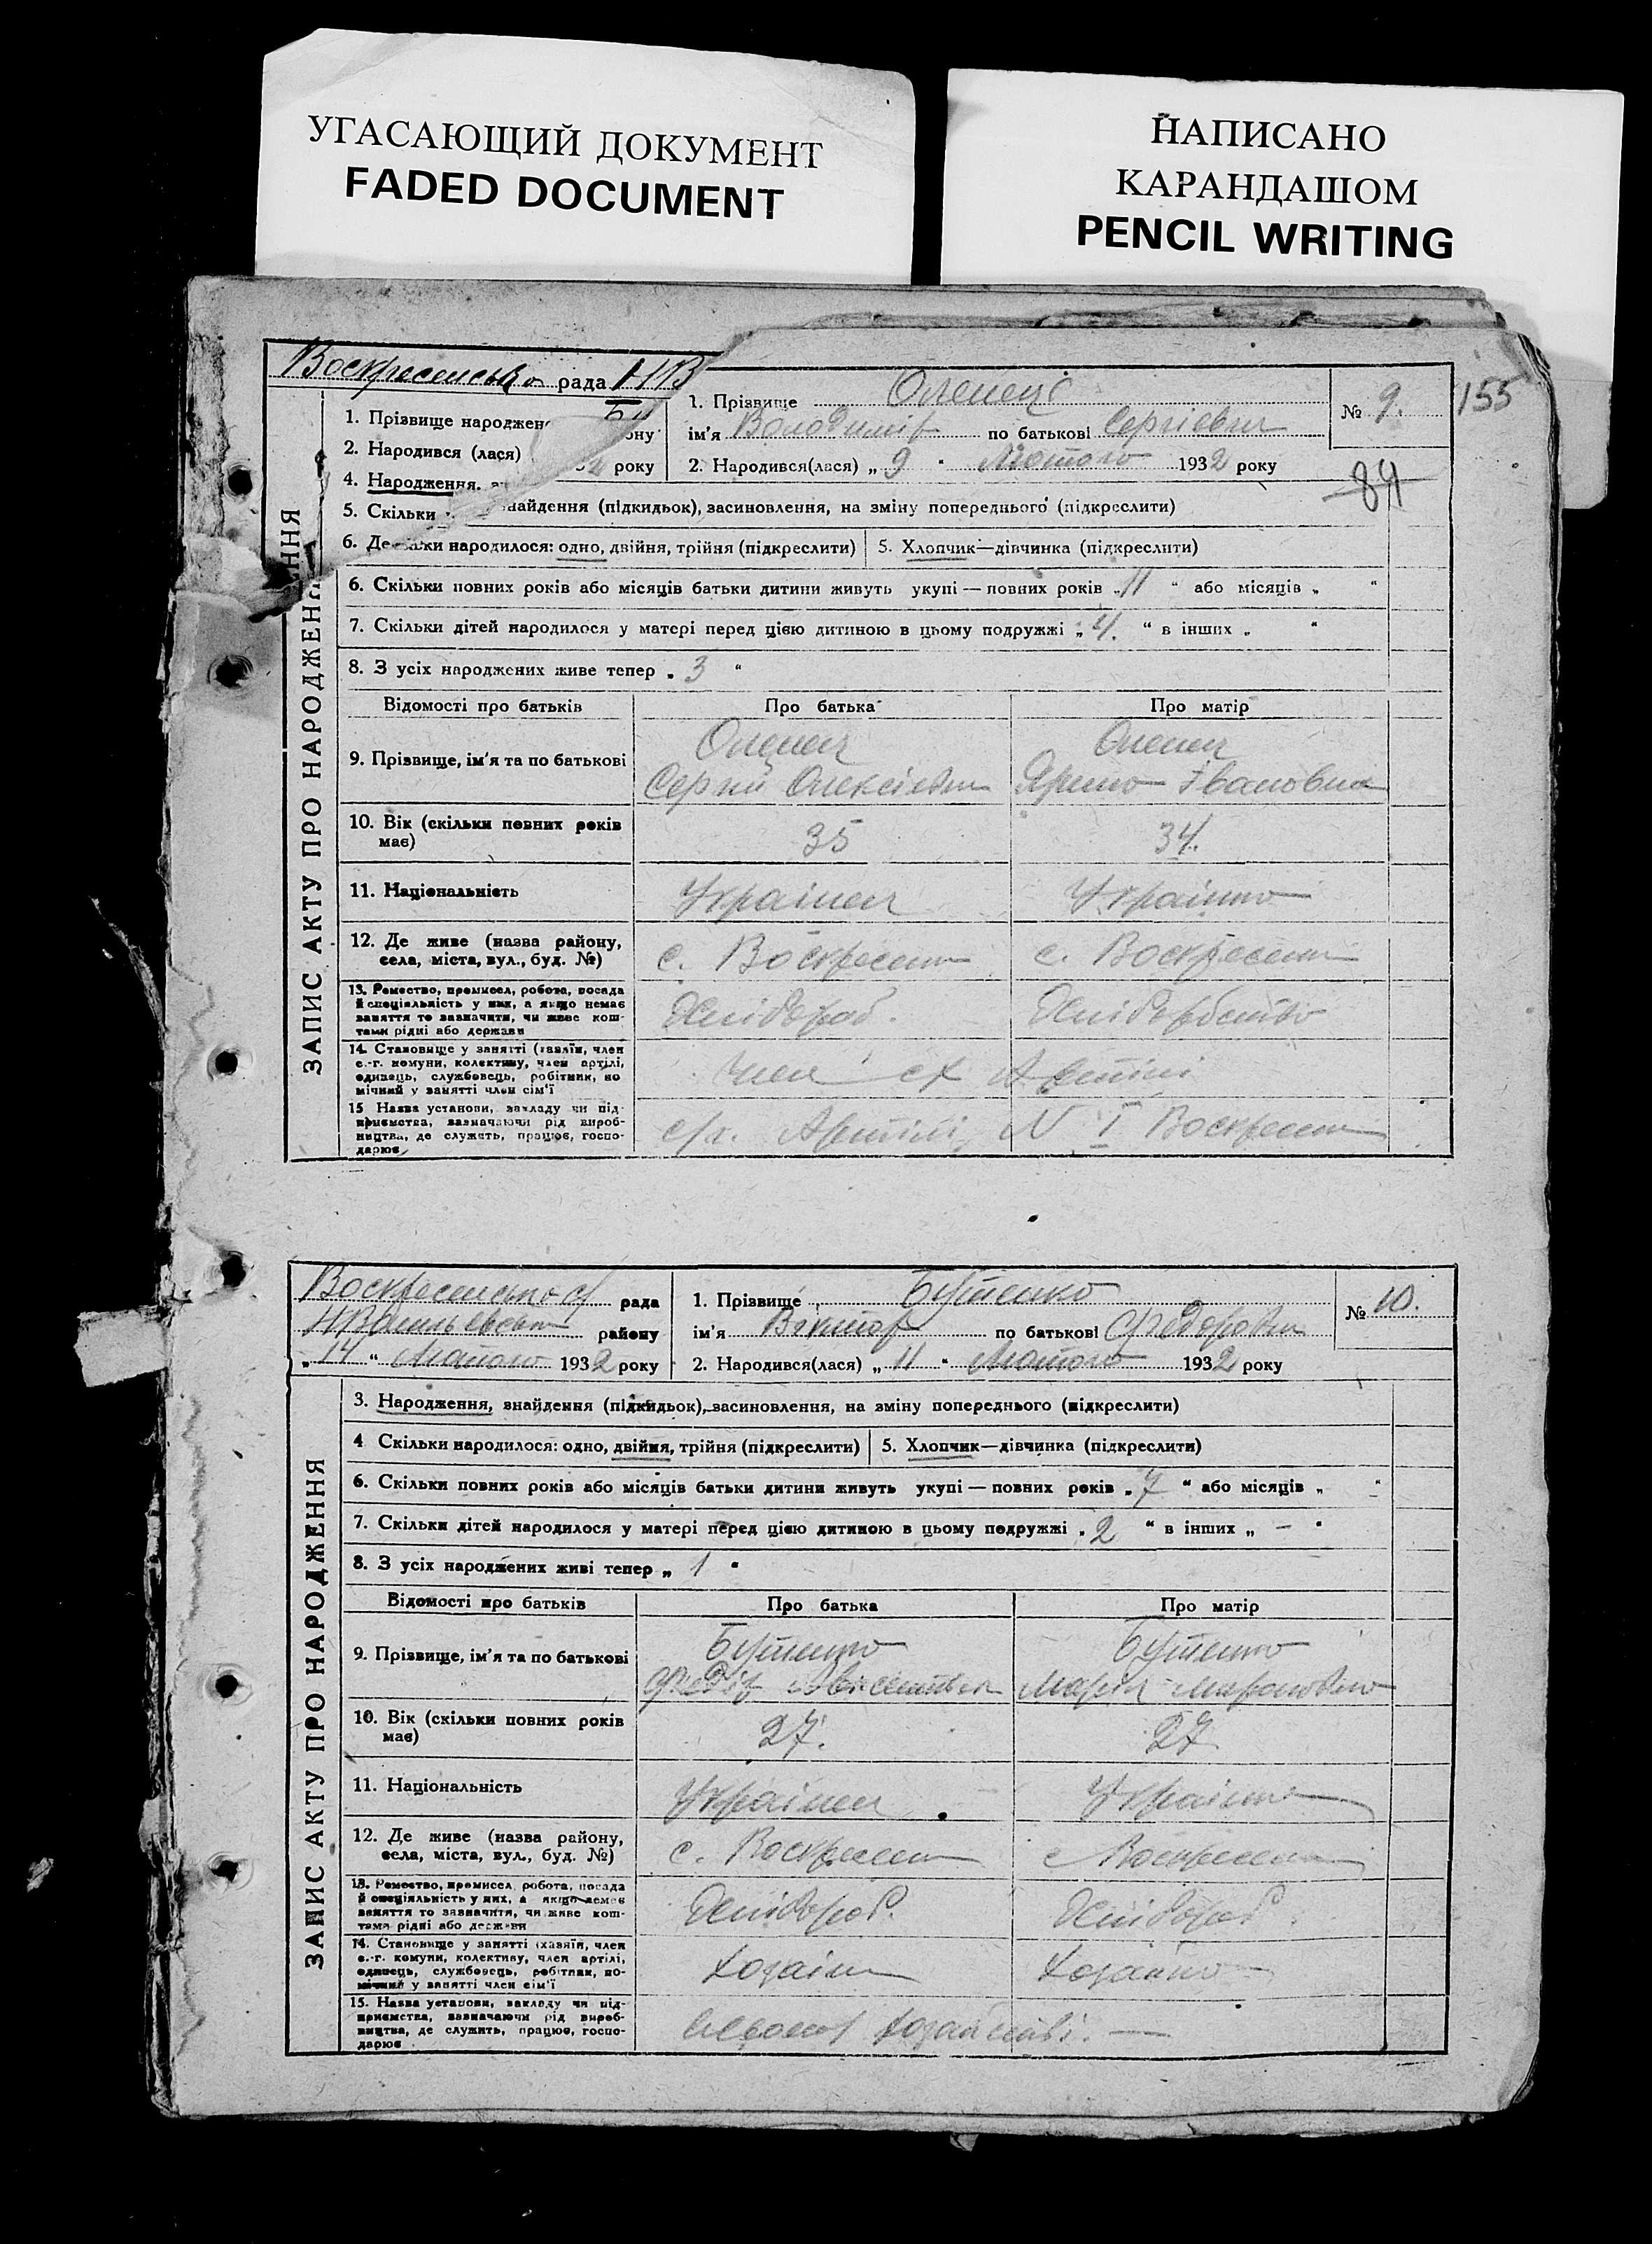 УГАСАЮЩИЙ ДОКУМЕНТ
FADED DOCUMENT
НАПИСАНО
КАРАНДАШОМ
PENCIL WRITING
рада
1. Прізвище народжено
2. Народився (лася)
4. Народження,
5. Скільки
6. Де
ону
року
1. Прізвище Оленець
ім'я Володимір по батькові Сергієвич
2. Народився(лася) „ 9 " Лютого 1932 року
№ 9.
155
84
знайдення (підкидьок), засиновлення, на зміну попереднього (підкреслити)
ки народилося: одно, двійня, трійня (підкреслити) 5. Хлопчик—дівчинка (підкреслити)
6. Скільки повних років або місяців батьки дитини живуть укупі — повних років „ 11 " або місяців „ "
7. Скільки дітей народилося у матері перед цією дитиною в цьому подружжі „ 4. " в інших „ "
8. З усіх народжених живе тепер „ 3 "
Відомості про батьків Про батька Про матір
9. Прізвище, ім'я та по батькові
Оленец Оленец
Сергій Олексієвич Ярина Івановна
10. Вік (скільки повних років має) 35 34.
11. Національність Українец Українка
12. Де живе (назва району, села, міста, вул., буд. №) с. Воскресенка с. Воскресенка
13. Ремество, промисел, робота, посада
й спеціяльність у них, а якщо немає
заняття то зазначити, чи живе кош-
тами рідні або держави
14. Становище у занятті (хазяїн, член
с.-г. комуни, колективу, член артілі,
одинець, службовець, робітник, по
мічний у занятті член сім'ї
член сг Артілі
15 Назва установи, закладу чи під-
приємства, зазначаючи рід вироб-
ництва, де служить, працює, госпо-
дарює
с/г. Артілі N I Воскресенка
ЗАПИС АКТУ ПРО НАРОДЖЕННЯ
рада
району
„ 14 " Лютого 1932 року
1. Прізвище Бутенко
ім'я Віктор по батькові Федорович
2. Народився(лася) „ 11 " Лютого 1932 року
№ 10.
3. Народження, знайдення (підкидьок), засиновлення, на зміну попереднього (підкреслити)
4 Скільки народилося: одно, двійня, трійня (підкреслити) 5. Хлопчик—дівчинка (підкреслити)
6. Скільки повних років або місяців батьки дитини живуть укупі — повних років „ 7 " або місяців „ - "
7. Скільки дітей народилося у матері перед цією дитиною в цьому подружжі „ 2 " в інших „ — "
8. З усіх народжених живі тепер „ 1 "
Відомості про батьків Про батька Про матір
9. Прізвище, ім'я та по батькові
Бутенко Бутенко
Федір Марія
10. Вік (скільки повних років має) 27. 27
11. Національність Українец Українка
12. Де живе (назва району, села, міста, вул., буд. №) с. Воскресенка с Воскресенка
13. Ремество, промисел, робота, посада
й спеціяльність у них, а якщо немає
заняття то зазначити, чи живе кош-
тами рідні або держави
14. Становище у занятті (хазяїн, член
с.-г. комуни, колективу, член артілі,
одинець, службовець, робітник, по-
мічний у занятті член сім'ї
15. Назва установи, закладу чи під-
приємства, зазначаючи рід вироб-
ництва, де служить, працює, госпо-
дарює
ЗАПИС АКТУ ПРО НАРОДЖЕННЯ